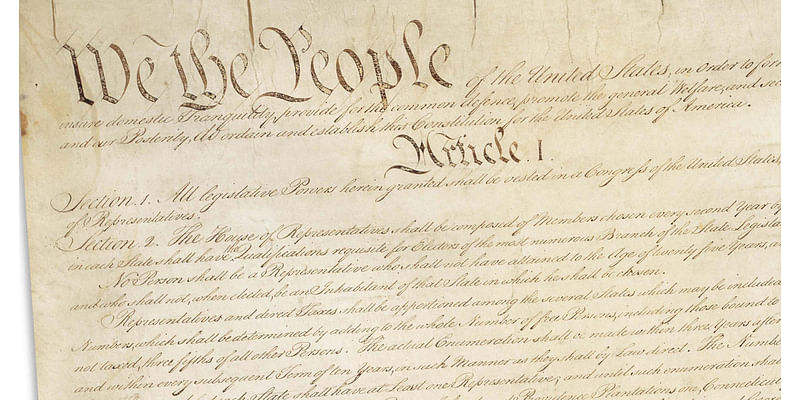 We the People of the United States, in order to form
insure domestic Tranquility, provide for the common defence, promote the general Welfare, and sec
and our Posterity, do ordain and establish this Constitution for the United States of America.
Article. I.
Section. 1. All legislative Powers herein granted shall be vested in a Congress of the United States,
of Representatives.
Section. 2. The House of Representatives shall be composed of Members chosen every second Year by
in each State shall have the Qualifications requisite for Electors of the most numerous Branch of the State Legisla
No Person shall be a Representative who shall not have attained to the Age of twenty five Years, an
and who shall not, when elected, be an Inhabitant of that State in which he shall be chosen.
Representatives and direct Taxes shall be apportioned among the several States which may be included
Numbers, which shall be determined by adding to the whole Number of free Persons, including those bound to
not taxed, three fifths of all other Persons. The actual Enumeration shall be made within three Years after
and within every subsequent Term of ten Years, in such Manner as they shall by Law direct. The Numbe
State shall have at Least one Representative; and until such enumeration shal
Providence Plantations one, Connecticut